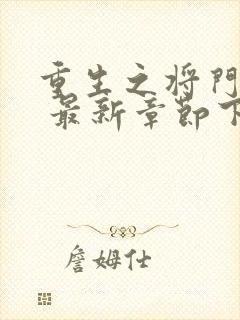 重生之将门
最新章节下
詹姆仕